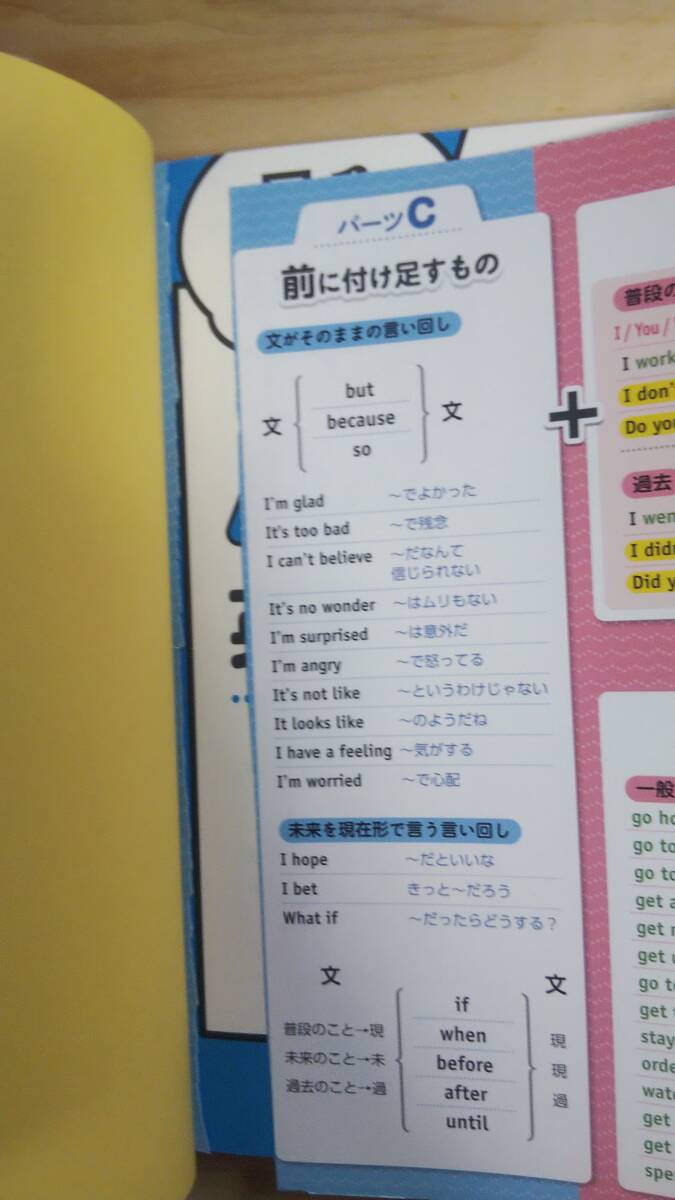 パーツC
前に付け足すもの
文がそのままの言い回し
文 but 文
because
so
I'm glad ～でよかった
It's too bad ～で残念
I can't believe ～だなんて
信じられない
It's no wonder ～はムリもない
I'm surprised ～は意外だ
I'm angry ～で怒ってる
It's not like ～というわけじゃない
It looks like ～のようだね
I have a feeling ～気がする
I'm worried ～で心配
未来を現在形で言う言い回し
I hope ～だといいな
I bet きっと～だろう
What if ～だったらどうする？
文 文
if
普段のこと→現 when 現
未来のこと→未 before 現
過去のこと→過 after 過
until
+
普段の
I / You /
I work
I don'
Do you
過去
I wen
I didn
Did y
一般
go ho
go to
go to
get a
get
get u
go to
get
stay
orde
wat
get
get
spe